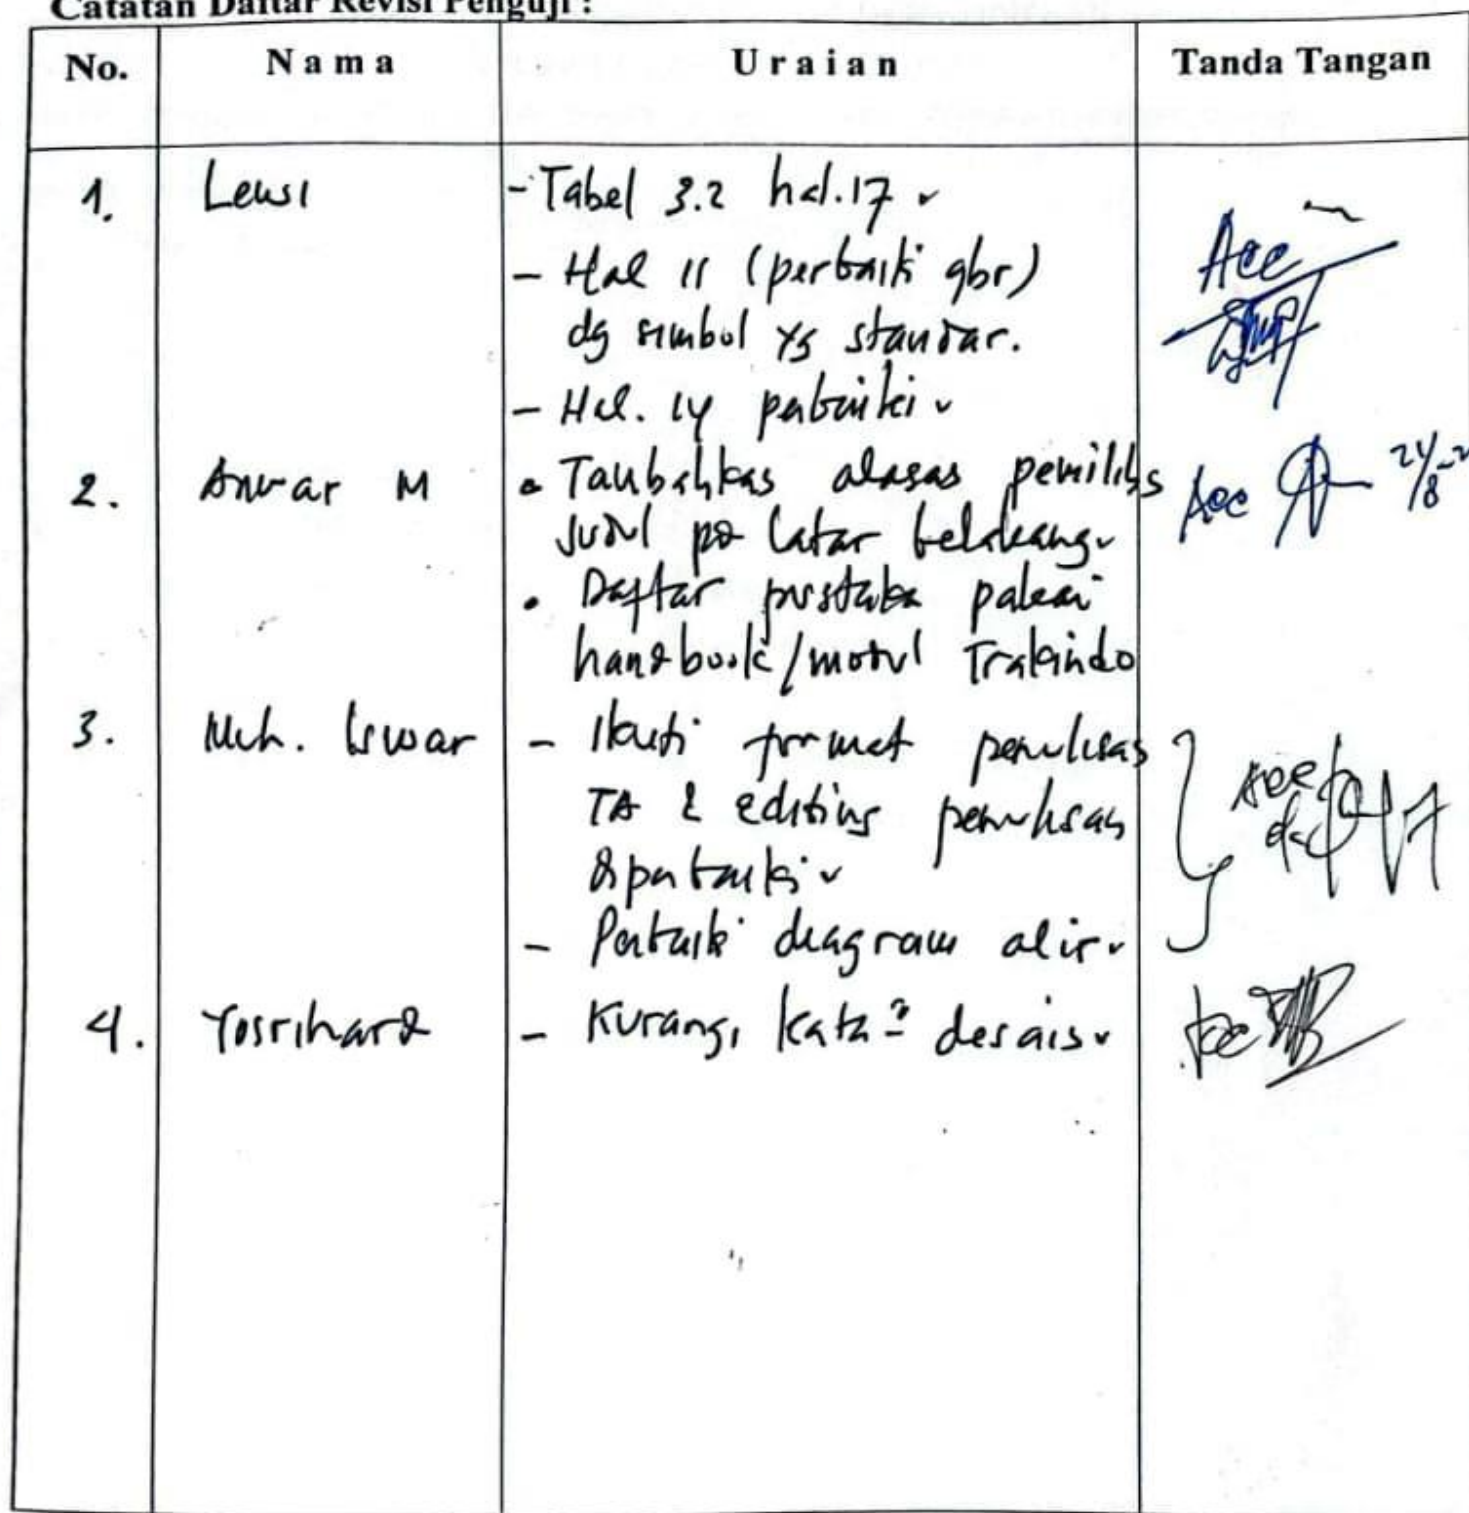 Catatan Daftar Revisi Penguji :
No. Nama Uraian Tanda Tangan
1. Lewsi - Tabel 3.2 hal.17 ✓
Acc
- Hal 11 (perbaiki gbr)
dg simbol yg standar.
- Hal. 14 perbaiki ✓
2. Anwar M • Tambahkan alasan pemilihan Acc 24/8-2
judul pd latar belakang ✓
• Daftar pustaka pakai
handbook/modul Trakindo
3. Muh. Iswar - Ikuti format penulisan
TA & editing penulisan Acc
diperbaiki ✓
- Perbaiki diagram alir ✓
4. Yosrihard - Kurangi kata² desain ✓ Acc